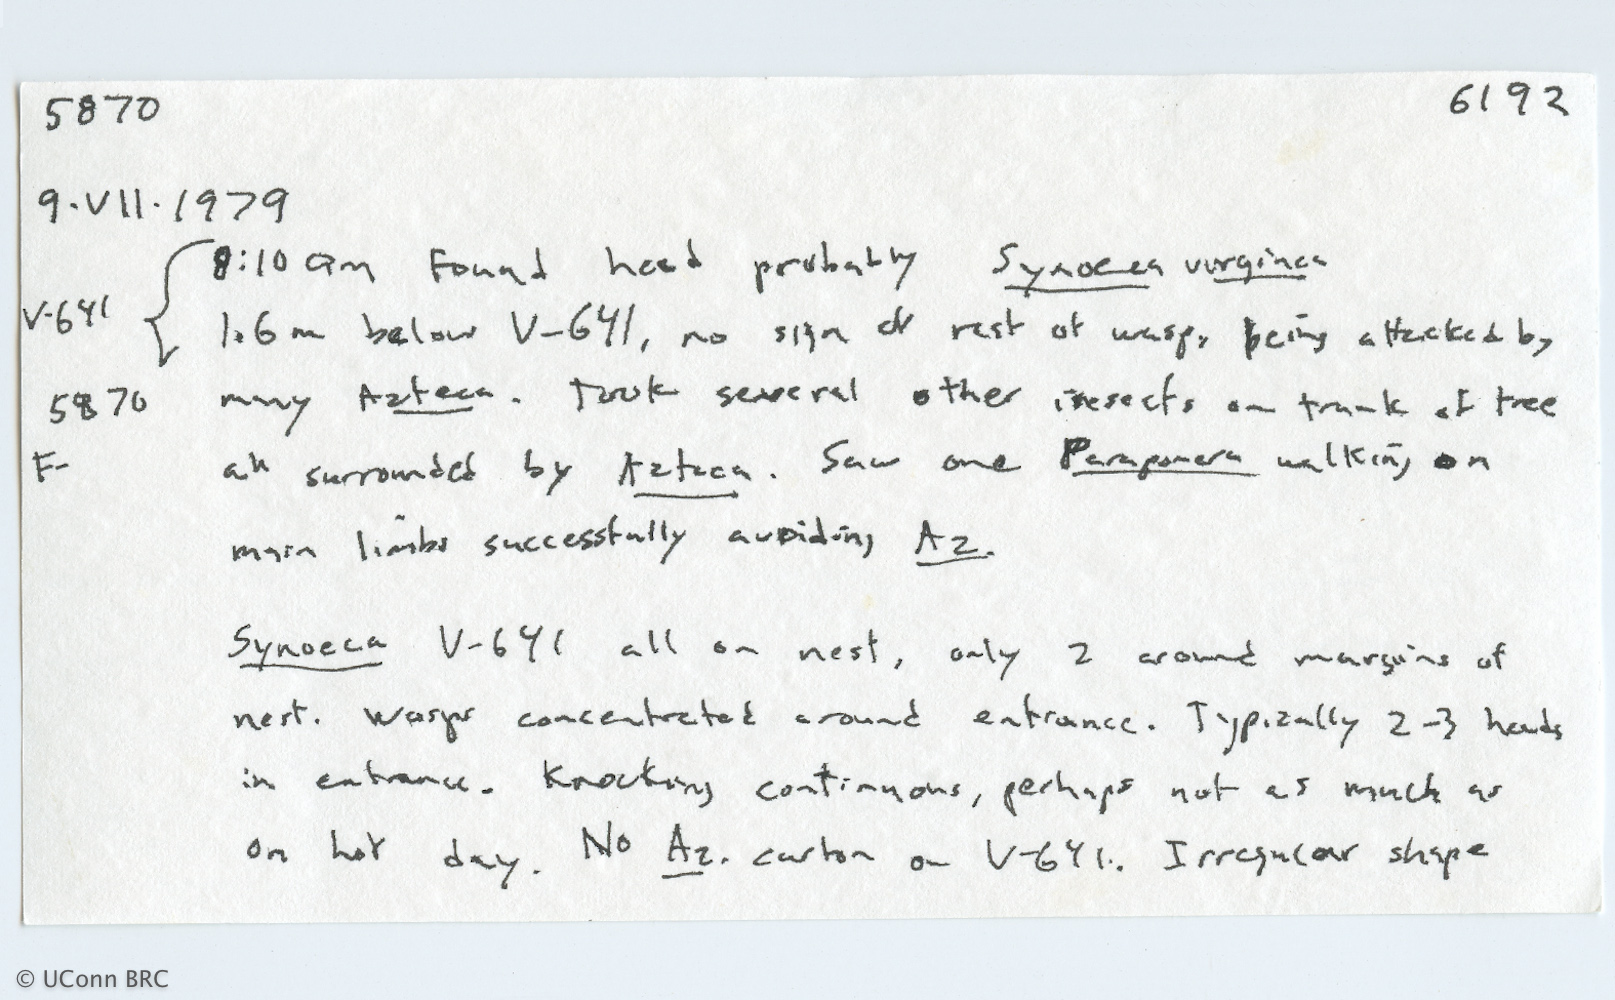 5870 6192
9·VII·1979
8:10 am Found head probably Synoeca virginea
V-641 1.6 m below V-641, no sign of rest of wasp, being attacked by
5870 many Azteca. Took several other insects on trunk of tree
F- all surrounded by Azteca. Saw one Paraponera walking on
main limbs successfully avoiding Az.
Synoeca V-641 all on nest, only 2 around margins of
nest. Wasps concentrated around entrance. Typically 2-3 heads
in entrance. Knocking continuous, perhaps not as much as
on hot day. No Az. carton on V-641. Irregular shape
© UConn BRC